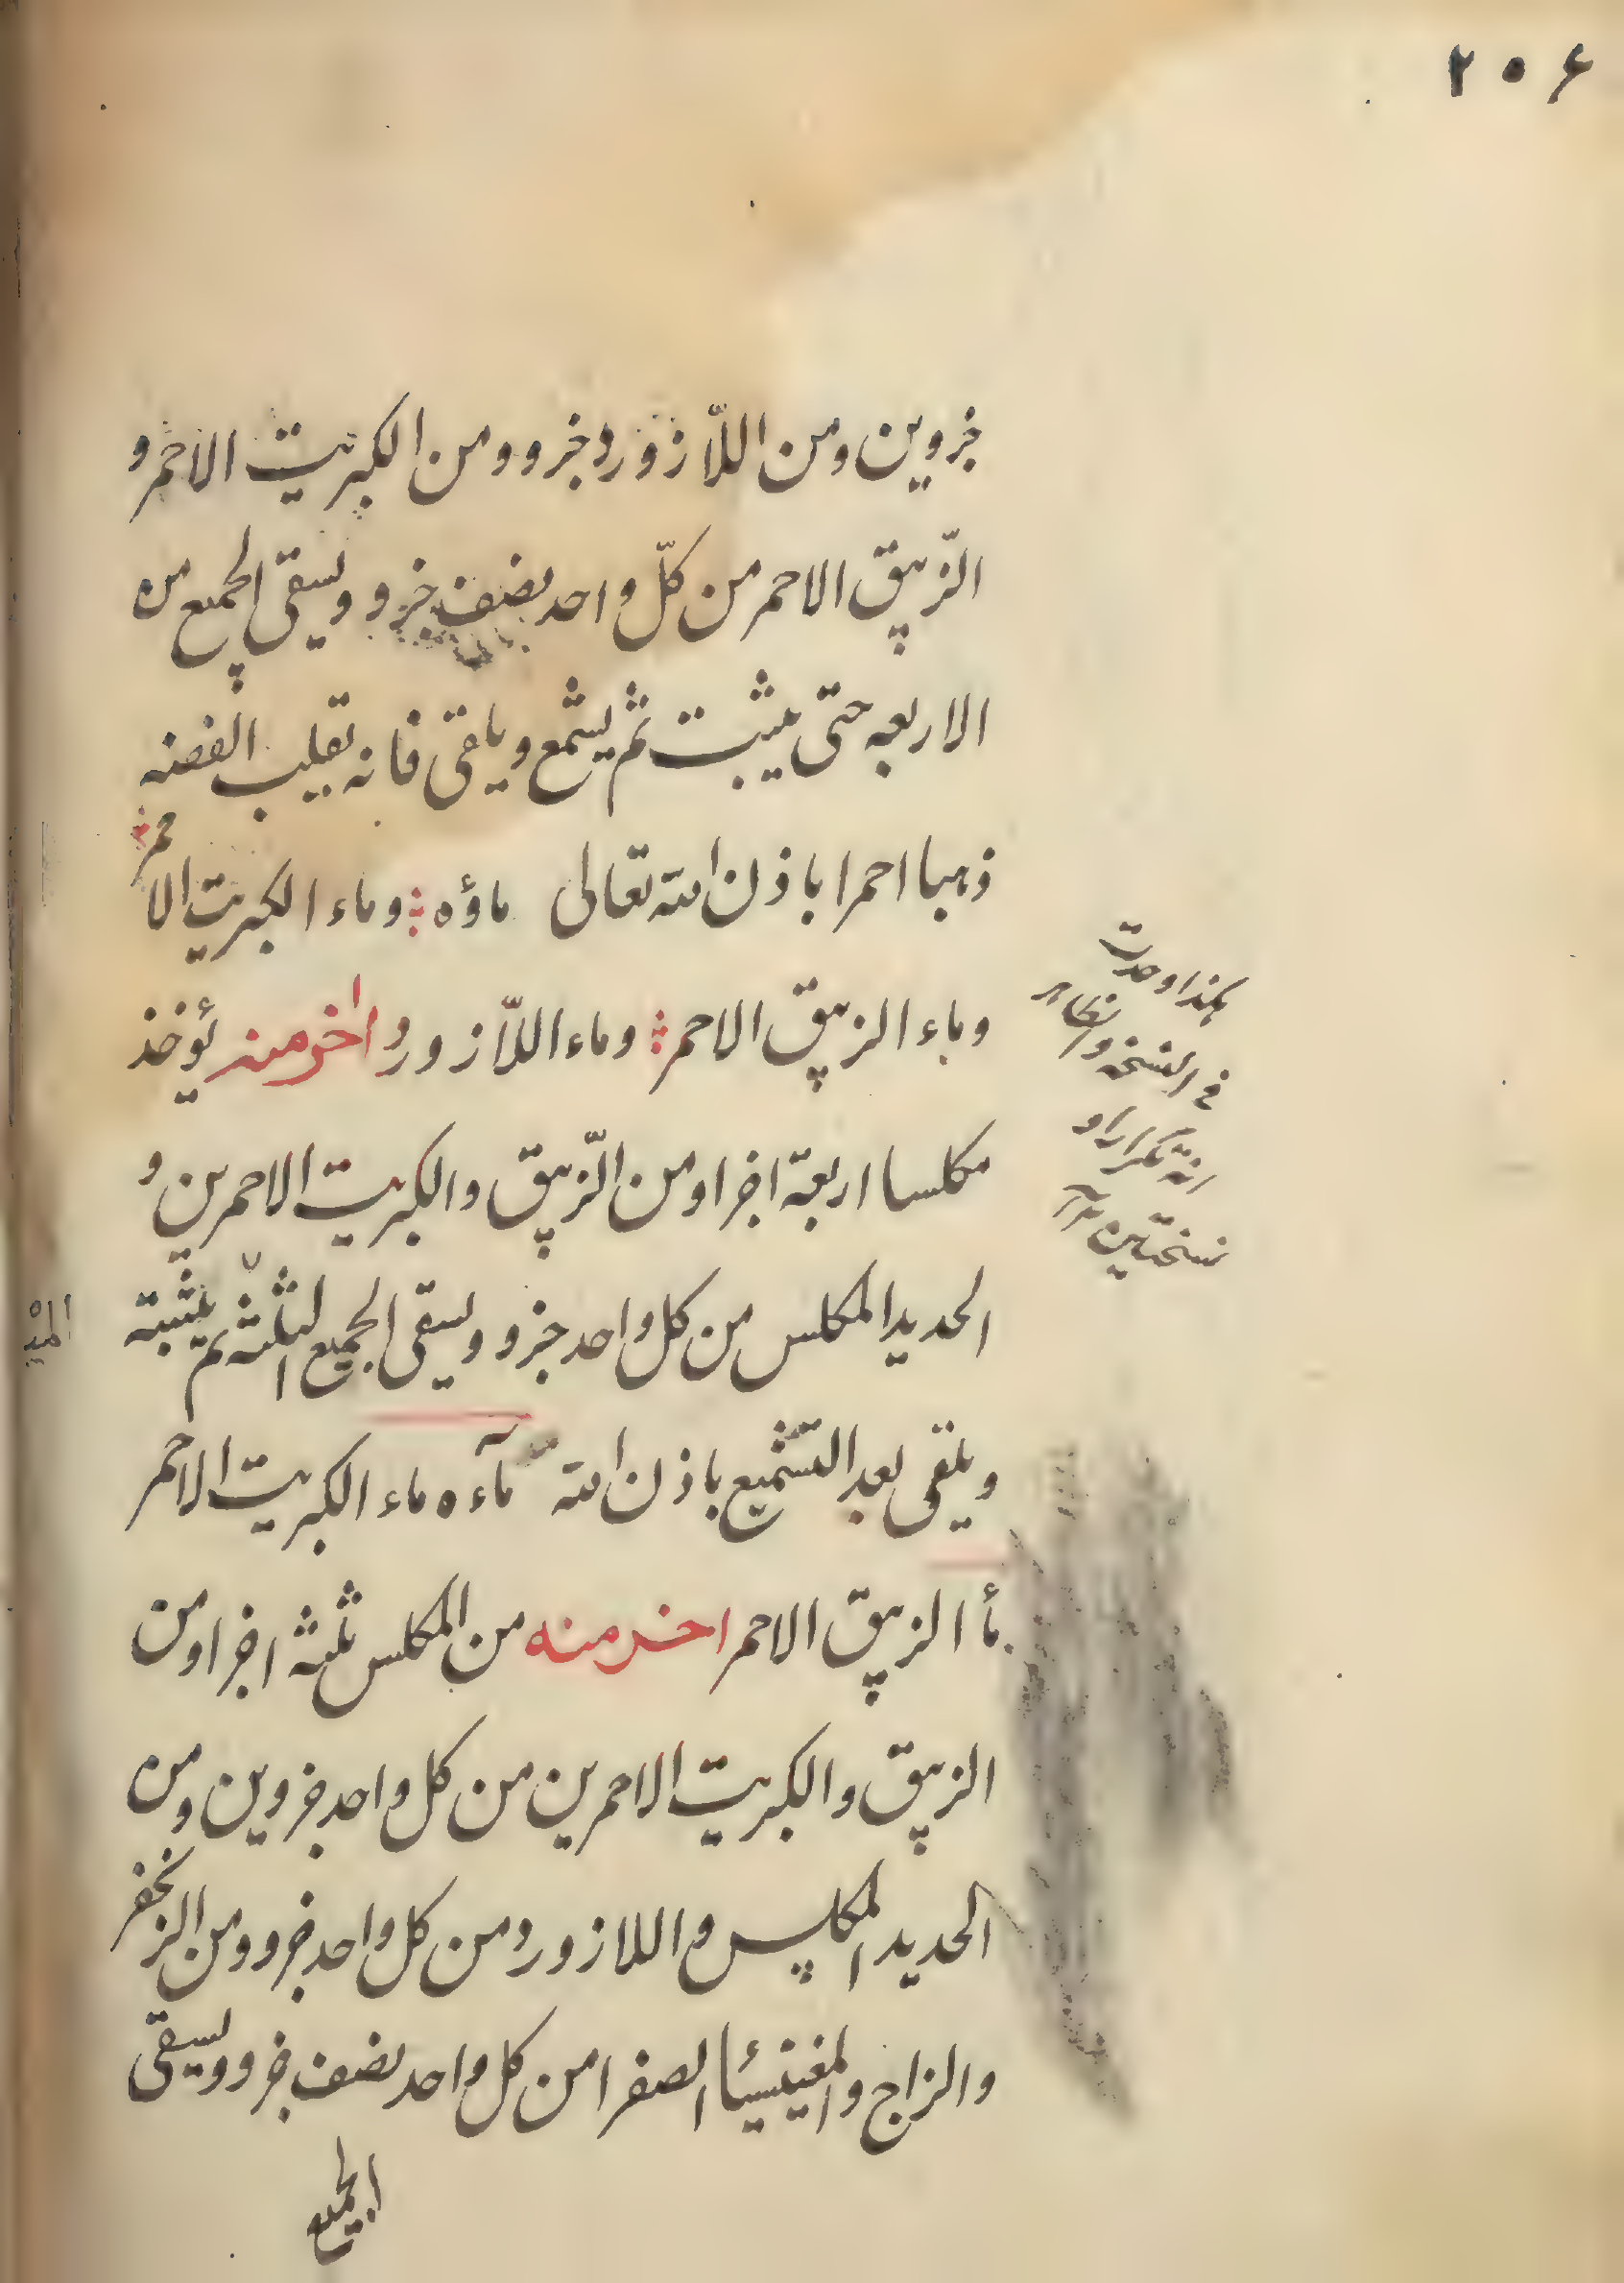 ۲۰۶
جزوين ومن اللّازورد جزو ومن الكبريت الاحمر و
الزّيبق الاحمر من كلّ واحد نصف جزو ويسقى الجميع من
الاربعه حتى يثبت ثم يشمع ويلقى فانه يقلب الفضه
ذهبا احمرا باذن الله تعالى ماؤه وماء الكبريت الاحمر
وماء الزيبق الاحمر وماء اللّازورد اخر منه يؤخذ
مكلسا اربعة اجزا ومن الزّيبق والكبريت الاحمرين و
الحديد المكلس من كل واحد جزو ويسقى الجميع الثلثة ثم يثبته
ويلقى بعد التشميع باذن الله مآءه ماء الكبريت الاحمر
مأ الزيبق الاحمر اخر منه من المكلس ثلثة اجزا ومن
الزيبق والكبريت الاحمرين من كل واحد جزوين ومن
الحديد المكلس واللازورد من كل واحد جزو ومن الزنجفر
والزاج والمغنيسيا الصفرا من كل واحد نصف جزو ويسقى
الجميع
هكذا وجدت
فى النسخه والظاهر
انه تكرار او
نسختين